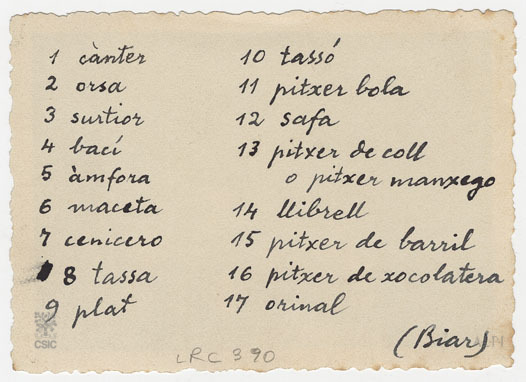 1 cànter
2 orsa
3 surtior
4 bací
5 àmfora
6 maceta
7 cenicero
8 tassa
9 plat
10 tassó
11 pitxer bola
12 safa
13 pitxer de coll
o pitxer manxego
14 llibrell
15 pitxer de barril
16 pitxer de xocolatera
17 orinal
(Biar)
CSIC
LRC 390